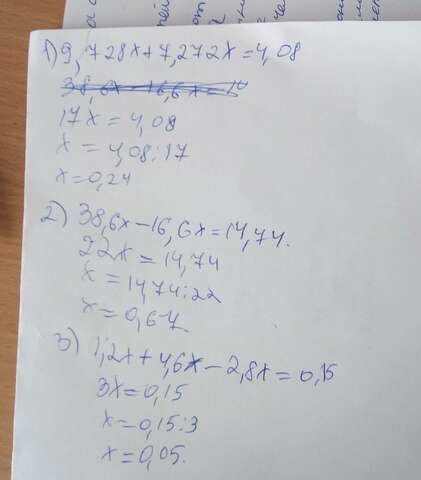 1) 9,728x+7,272x=4,08
38,6x-16,6x=14
17x=4,08
x=4,08:17
x=0,24
2) 38,6x-16,6x=14,74.
22x=14,74
x=14,74:22
x=0,67
3) 1,2x+4,6x-2,8x=0,15
3x=0,15
x=0,15:3
x=0,05.